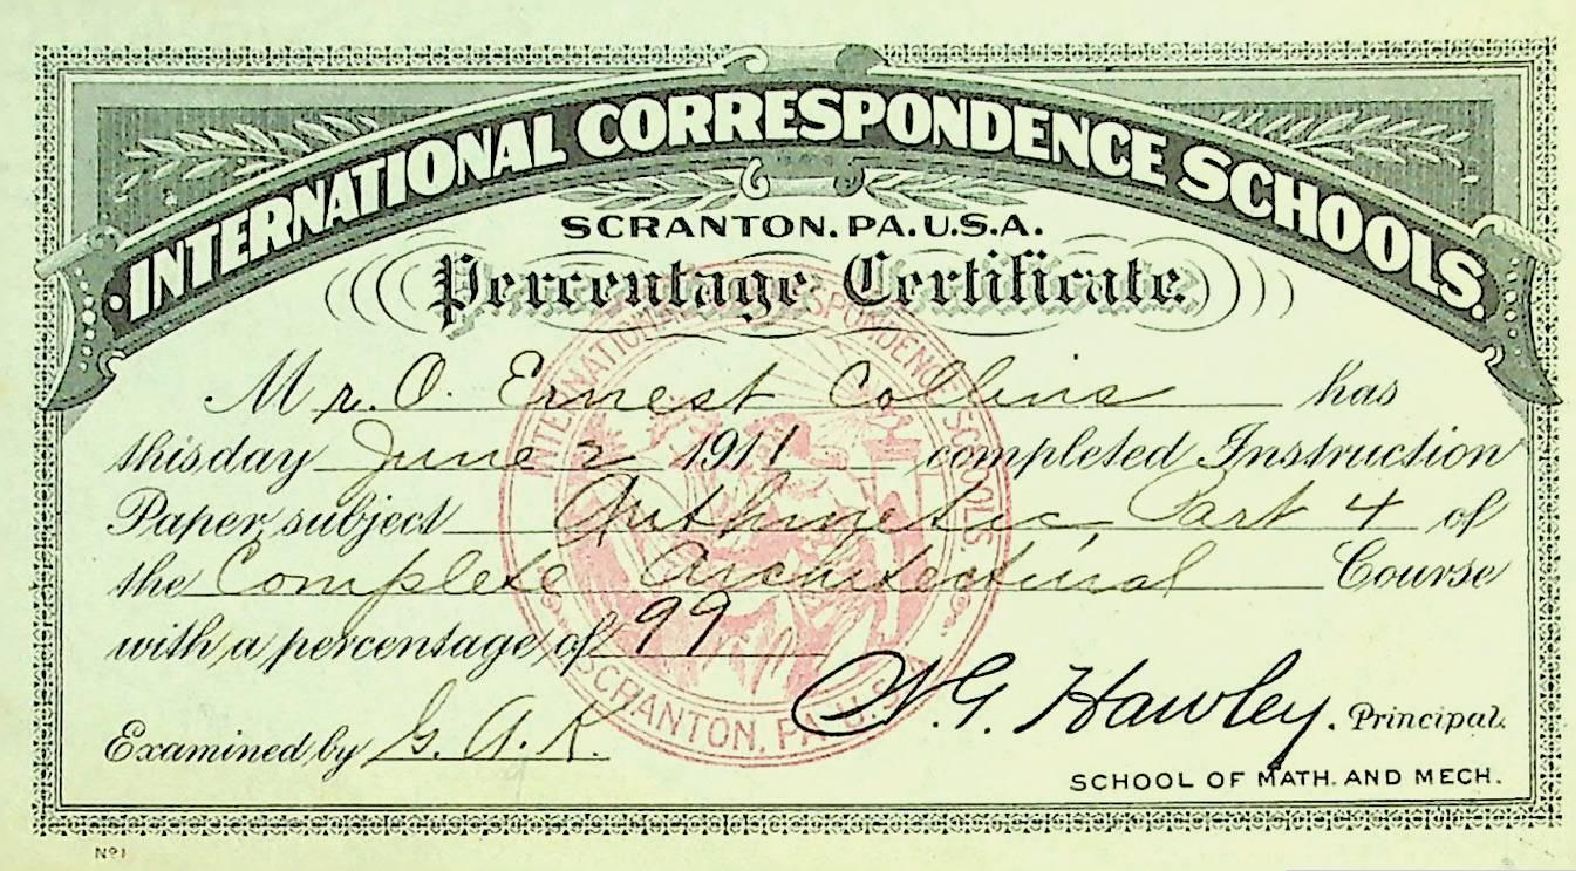 INTERNATIONAL CORRESPONDENCE SCHOOLS.
SCRANTON, PA. U.S.A.
Percentage Certificate.
Mr. O. Ernest Collins has
this day June 2 1911 completed Instruction
Paper, subject Arithmetic, Part 4 of
the Complete Architectural Course
with a percentage of 99
Examined by G. A. K.
N. G. Hawley. Principal.
SCHOOL OF MATH. AND MECH.
INTERNATIONAL CORRESPONDENCE SCHOOLS.
SCRANTON, PA. U.S.
No 1